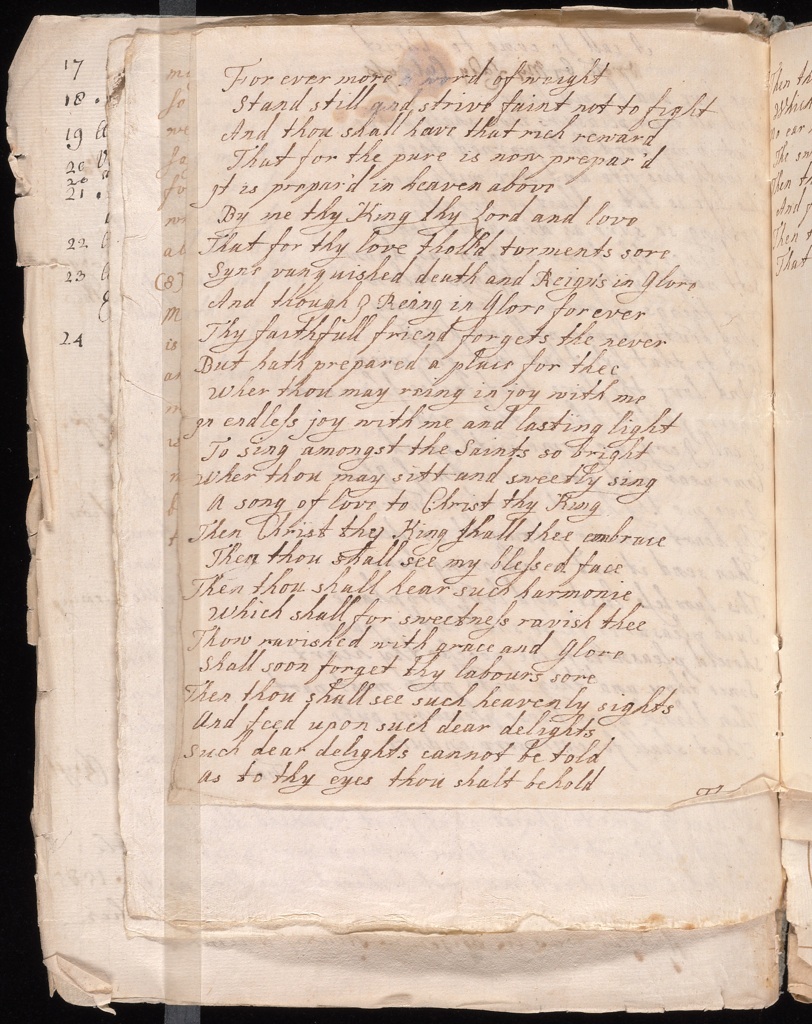 For ever more a word of weight
Stand still and strive faint not to fight
And thou shall have that rich reward
That for the pure is now prepar'd
It is prepar'd in heaven above
By me thy King thy Lord and love
That for thy love tholld torments sore
Syns vanquished death and Reigns in Glore
And though I Reing in Glore for ever
Thy faithfull friend forgets the never
But hath prepared a place for thee
Wher thou may reing in joy with me
In endless joy with me and lasting light
To sing amongst the Saints so bright
Wher thou may sitt and sweetly sing
A song of love to Christ thy King
Then Christ thy King shall thee embrace
Then thou shall see my blessed face
Then thou shall hear such harmonie
Which shall for sweetness ravish thee
Thow ravished with grace and Glore
Shall soon forget thy labours sore
Then thou shall see such heavenly sights
And feed upon such dear delights
Such dear delights cannot be told
As to thy eyes thou shalt behold
17
18
19
20
21
22
23
24
(8)
is
Then
Which
Then
And
Then
That